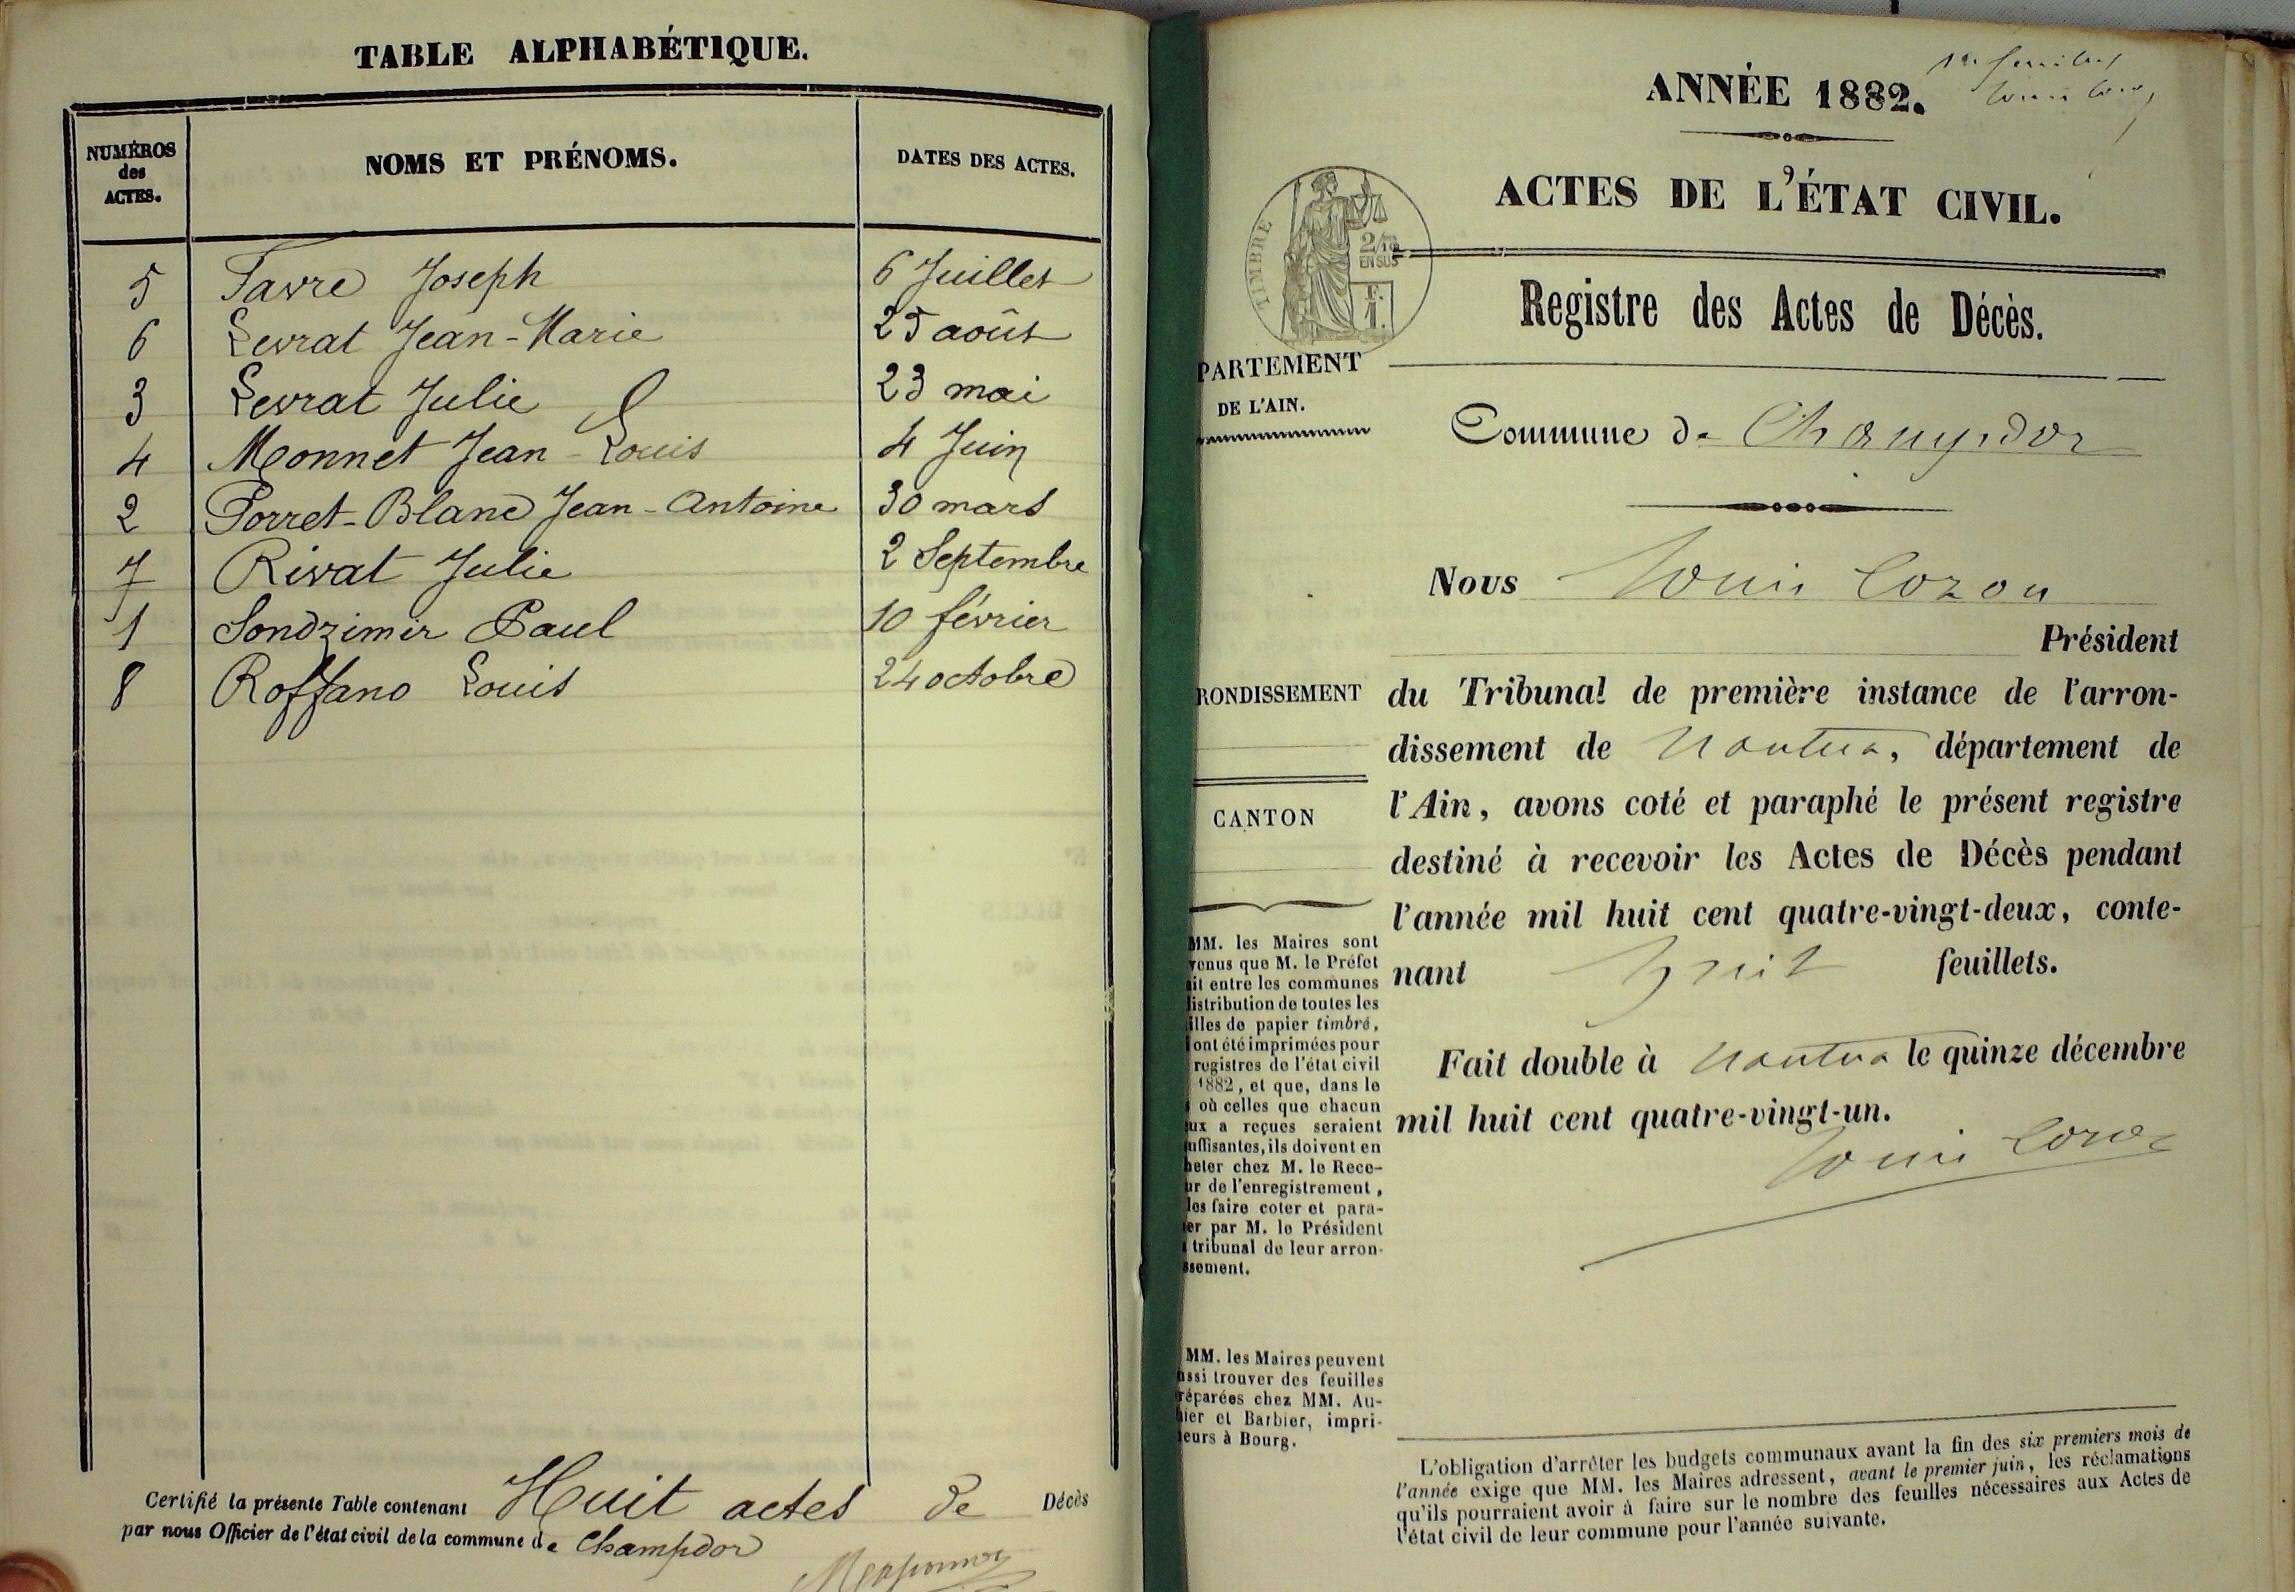 TABLE ALPHABÉTIQUE.
NUMÉROS des ACTES.
NOMS ET PRÉNOMS.
DATES DES ACTES.
5 Favre Joseph 6 Juillet
6 Levrat Jean-Marie 25 août
3 Levrat Julie 23 mai
4 Monnet Jean-Louis 4 Juin
2 Porret-Blanc Jean-Antoine 30 mars
7 Rivat Julie 2 Septembre
1 Sondzimir Paul 10 février
8 Roffano Louis 24 octobre
Certifié la présente Table contenant Huit actes de Décès
par nous Officier de l'état civil de la commune de Champdor
1er feuillet
Louis Cozon
ANNÉE 1882.
ACTES DE L'ÉTAT CIVIL.
TIMBRE
2/10
EN SUS
F.
1.
Registre des Actes de Décès.
PARTEMENT
DE L'AIN.
Commune de Champdor
Nous Louis Cozon
Président
RONDISSEMENT
du Tribunal de première instance de l'arron-
dissement de Nantua, département de
l'Ain, avons coté et paraphé le présent registre
CANTON
destiné à recevoir les Actes de Décès pendant
l'année mil huit cent quatre-vingt-deux, conte-
nant huit feuillets.
Fait double à Nantua le quinze décembre
mil huit cent quatre-vingt-un.
Louis Cozon
MM. les Maires sont
venus que M. le Préfet
it entre les communes
distribution de toutes les
illes de papier timbré,
ont été imprimées pour
registres de l'état civil
1882, et que, dans le
où celles que chacun
ux a reçues seraient
uffisantes, ils doivent en
heter chez M. le Rece-
ur de l'enregistrement,
les faire coter et para-
er par M. le Président
tribunal de leur arron-
ssement.
MM. les Maires peuvent
ussi trouver des feuilles
réparées chez MM. Au-
hier et Barbier, impri-
eurs à Bourg.
L'obligation d'arrêter les budgets communaux avant la fin des six premiers mois de
l'année exige que MM. les Maires adressent, avant le premier juin, les réclamations
qu'ils pourraient avoir à faire sur le nombre des feuilles nécessaires aux Actes de
l'état civil de leur commune pour l'année suivante.